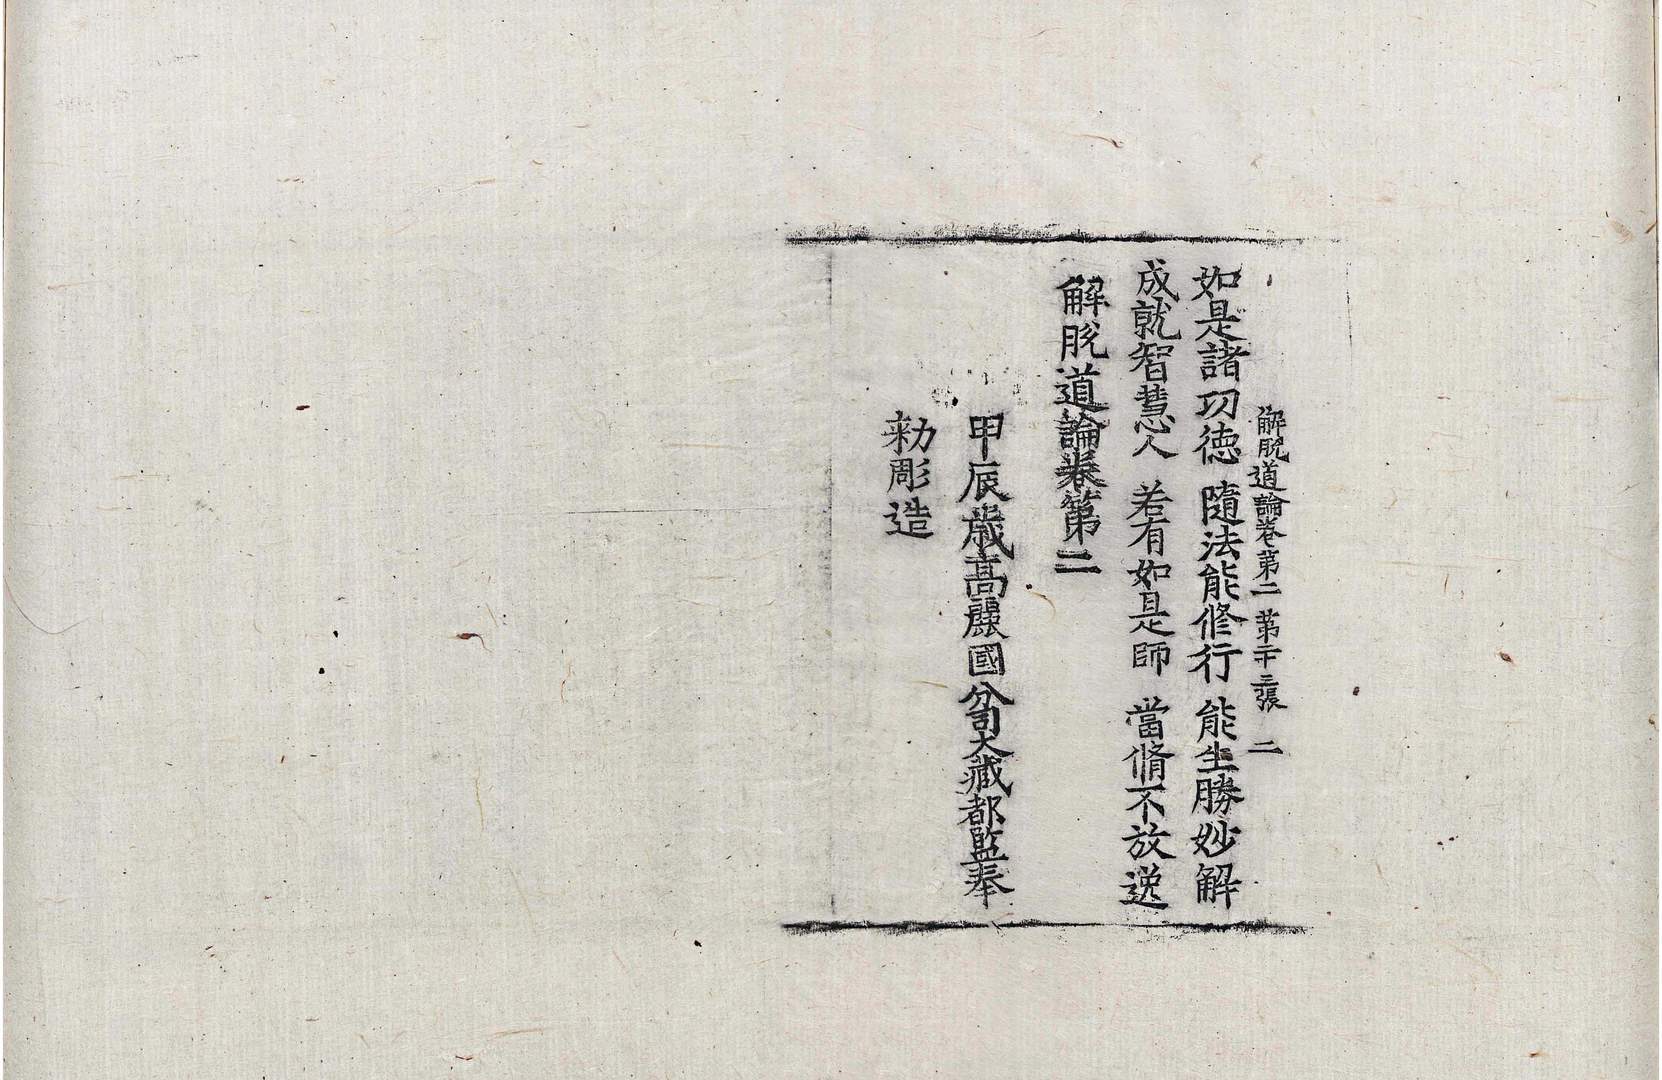 解脫道論卷第二 第二十三張 二
如是諸功德 隨法能修行 能生勝妙解
成就智慧人 若有如是師 當脩不放逸
解脫道論卷第二
甲辰歲高麗國分司大藏都監奉
勑彫造